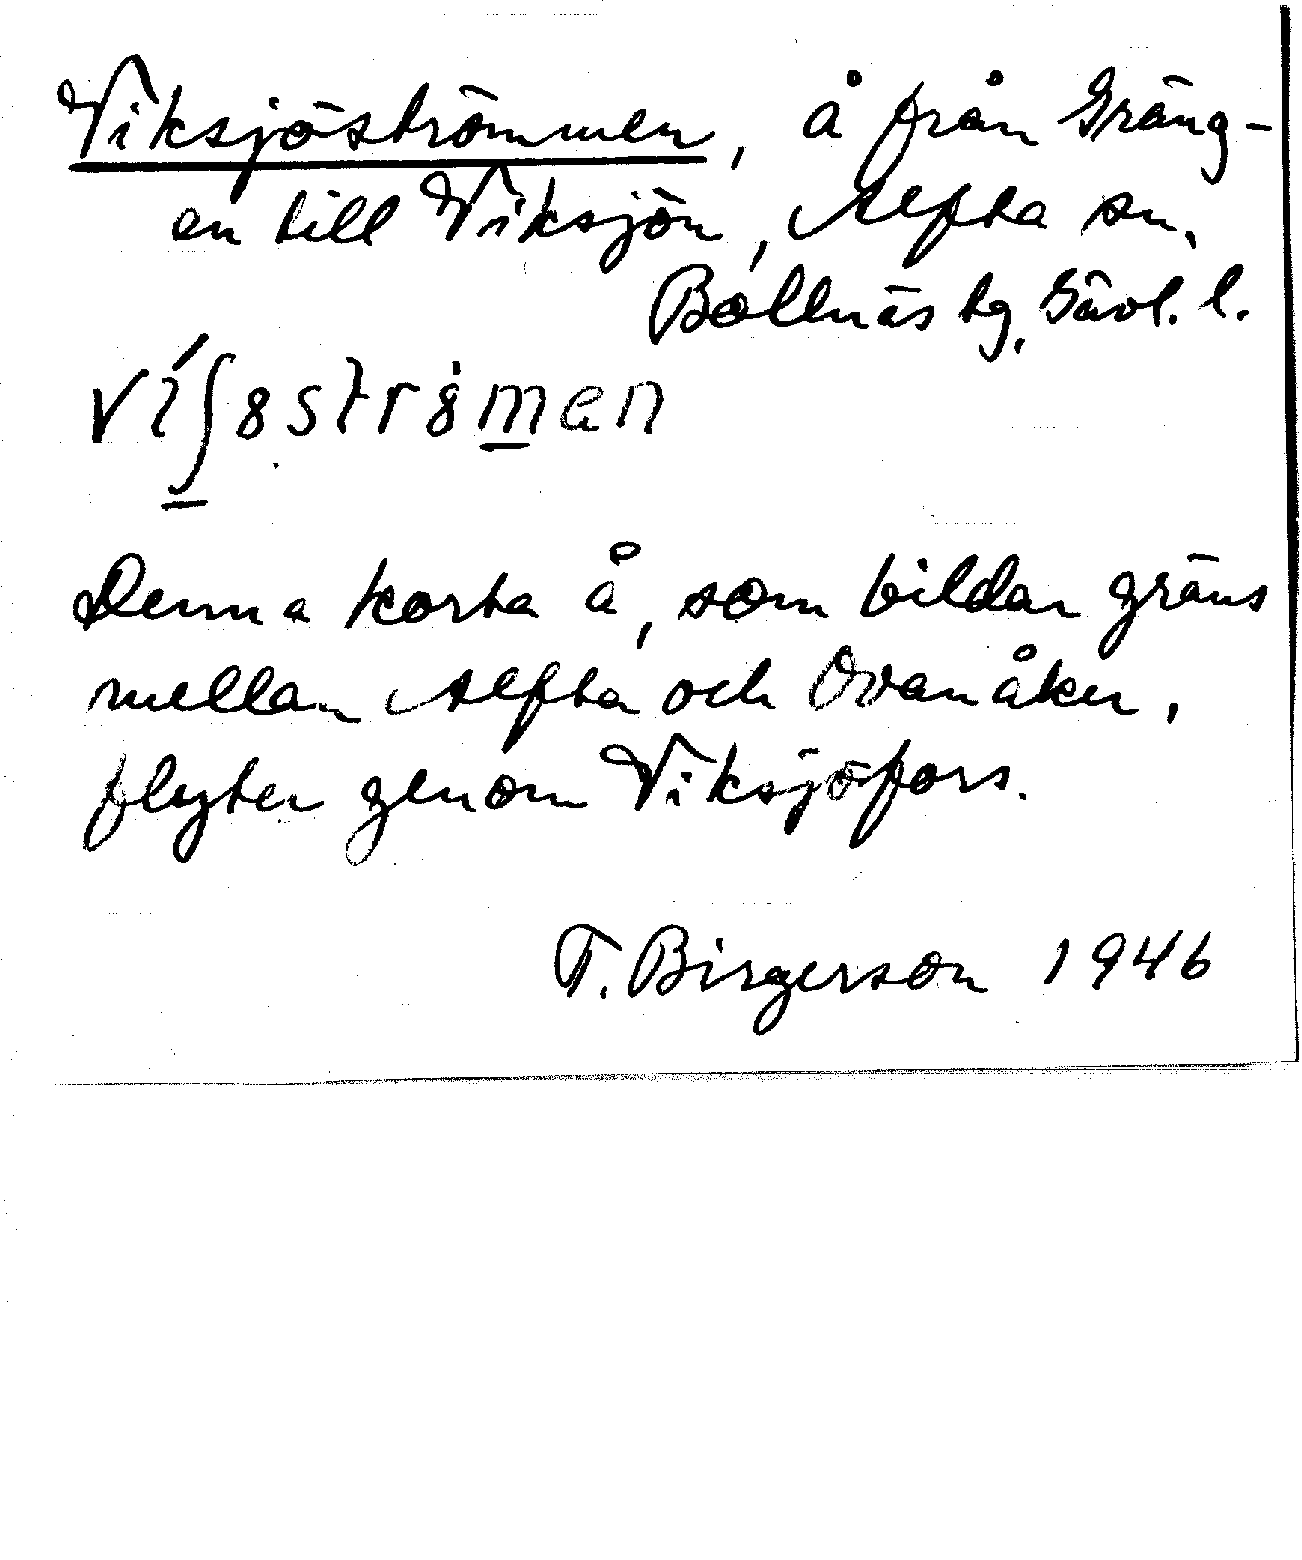 Viksjöströmmen, å från Gräng-
en till Viksjön, Alfta sn,
Bollnäs tg, Gävl. l.
víʃ8str8men
Denna korta å, som bildar gräns
mellan Alfta och Ovanåker,
flyter genom Viksjöfors.
T. Birgerson 1946